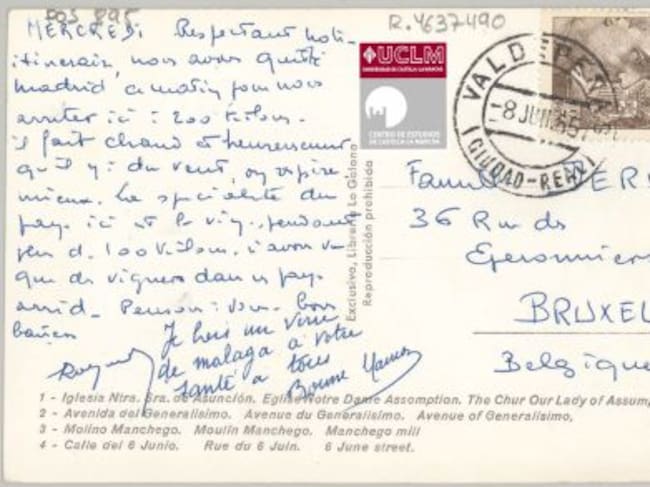 POS 895
R.4637490
MERCREDI Respectant notre
itinéraire, nous avons quitté
madrid ce matin pour nous
arrêter ici à 200 kilom.
il fait chaud et heureusement
qu'il y a du vent, on respire
mieux. La spécialité du
pays ici est la vigne, pendant
près de 100 kilom. n'avons vu
que des vignes dans un pays
arrid. Pensons à vous. bons
baisers
Je bois un verre
de malaga à votre
santé à tous
Bonne Maman
UCLM
UNIVERSIDAD DE CASTILLA-LA MANCHA
CENTRO DE ESTUDIOS
DE CASTILLA-LA MANCHA
Exclusiva, Librería La Galana
Reproducción prohibida
VALDEPEÑAS
-8 JUN
(CIUDAD-REAL)
36 Rue des
Eperonniers
BRUXEL
Belgique
1 - Iglesia Ntra. Sra. de Asunción. Eglise Notre Dame Assomption. The Chur Our Lady of Assum
2 - Avenida del Generalisimo. Avenue du Generalisimo. Avenue of Generalisimo,
3 - Molino Manchego. Moulin Manchego. Manchego mill
4 - Calle del 6 Junio. Rue du 6 Juin. 6 June street.